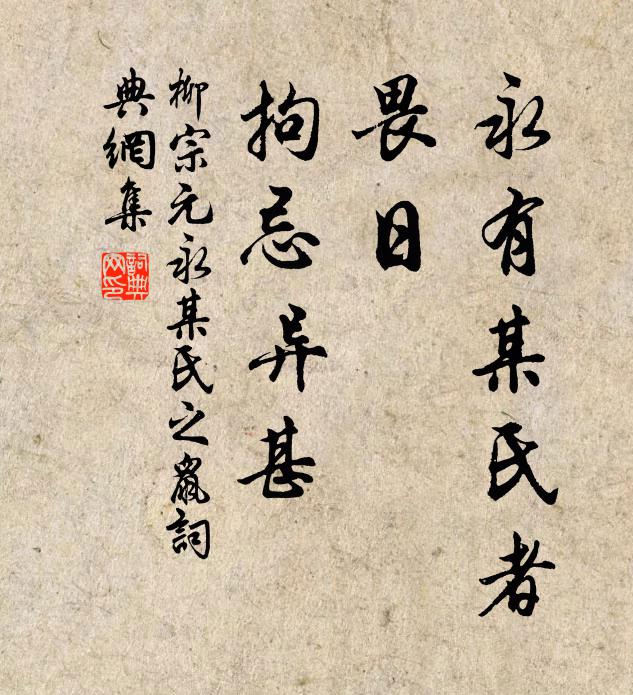 永有某氏者
畏日
拘忌异甚
柳宗元永某氏之鼠詞
典網集
詞典
网印